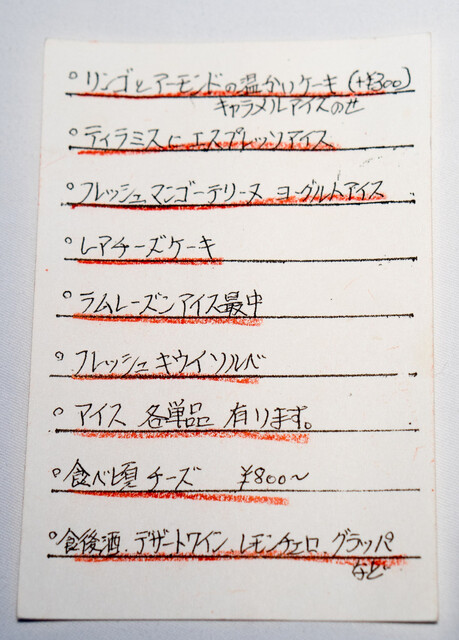 ○リンゴとアーモンドの温かいケーキ(+¥300)
キャラメルアイスのせ
○ティラミスにエスプレッソアイス
○フレッシュマンゴーテリーヌ ヨーグルトアイス
○レアチーズケーキ
○ラムレーズンアイス最中
○フレッシュキウイソルベ
○アイス 各単品 有ります。
○食べ頃チーズ ¥800〜
○食後酒 デザートワイン レモンチェロ グラッパ
など